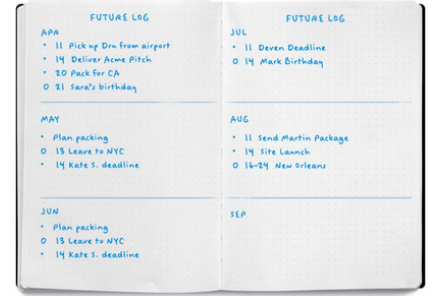 FUTURE LOG
APR
• 11 Pick up Drn from airport
• 14 Deliver Acme Pitch
• 20 Pack for CA
O 21 Sara's birthday
MAY
• Plan packing
O 13 Leave to NYC
• 14 Kate S. deadline
JUN
• Plan packing
O 13 Leave to NYC
• 14 Kate S. deadline
FUTURE LOG
JUL
• 11 Deven Deadline
O 14 Mark Birthday
AUG
• 11 Send Martin Package
• 14 Site Launch
O 16-24 New Orleans
SEP